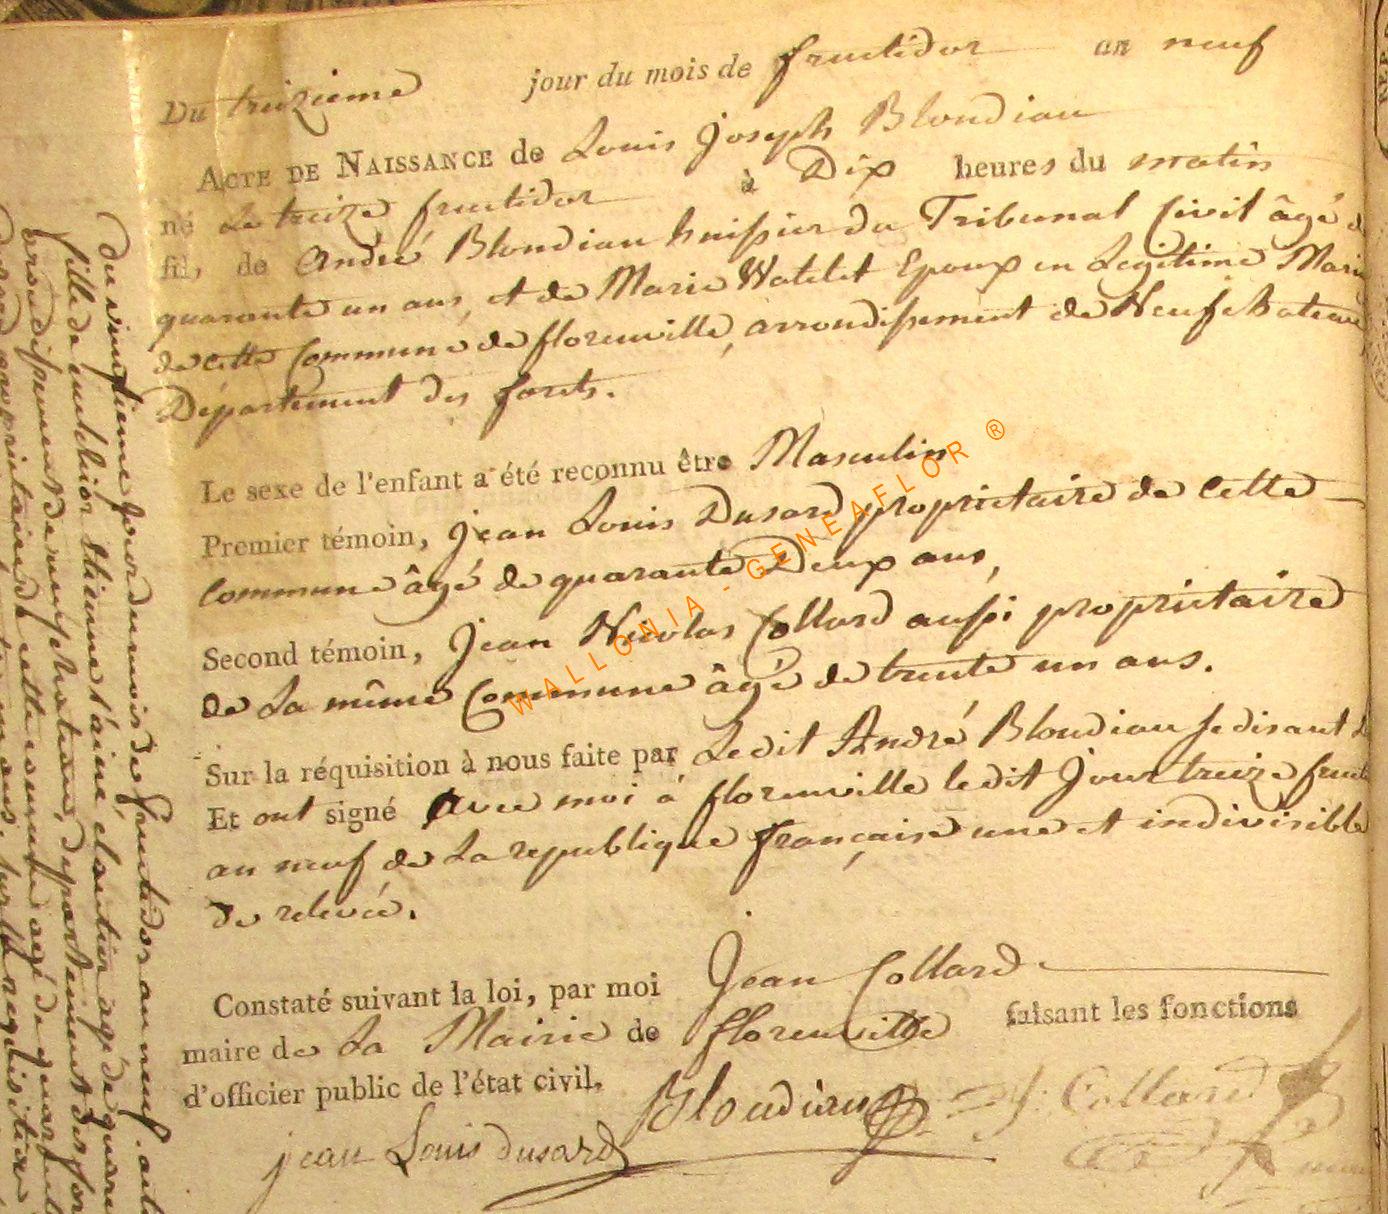 Du treizieme jour du mois de fructidor an neuf
Acte de Naissance de Louis Joseph Blondiau
né Le treize fructidor à Dix heures du matin
fils de André Blondiau huissier du Tribunal Civil âgé d
quarante un ans, et de Marie Watelet Epoux en Legitime Mari
de cette Commune de florenville, arrondissement de Neufchateau
Département des forets.
Le sexe de l'enfant a été reconnu être Masculin
Premier témoin, jean Louis Dusard proprietaire de cette
Commune âgé de quarante Deux ans,
Second témoin, Jean Nicolas Collard aussi proprietaire
de La même Commune âgé de trente un ans.
Sur la réquisition à nous faite par Ledit André Blondiau se disant
Et ont signé avec moi à florenville ledit Jour treize fruct
an neuf de La republique française une et indivisible
De relevée.
Constaté suivant la loi, par moi Jean Collard
maire de La Mairie de florenville faisant les fonctions
d'officier public de l'état civil,
Blondiau J: Collard
jean Louis dusard
du vingtieme jour du mois de fructidor an neuf. acte
fille de etienne l'ainé, cloutier agé de quara
arrondissement de neufchateau, departement des for
proprietaire de cette commune agé de quarante
un ans. Sur la requisition
WALLONIA - GENEAFLOR ®